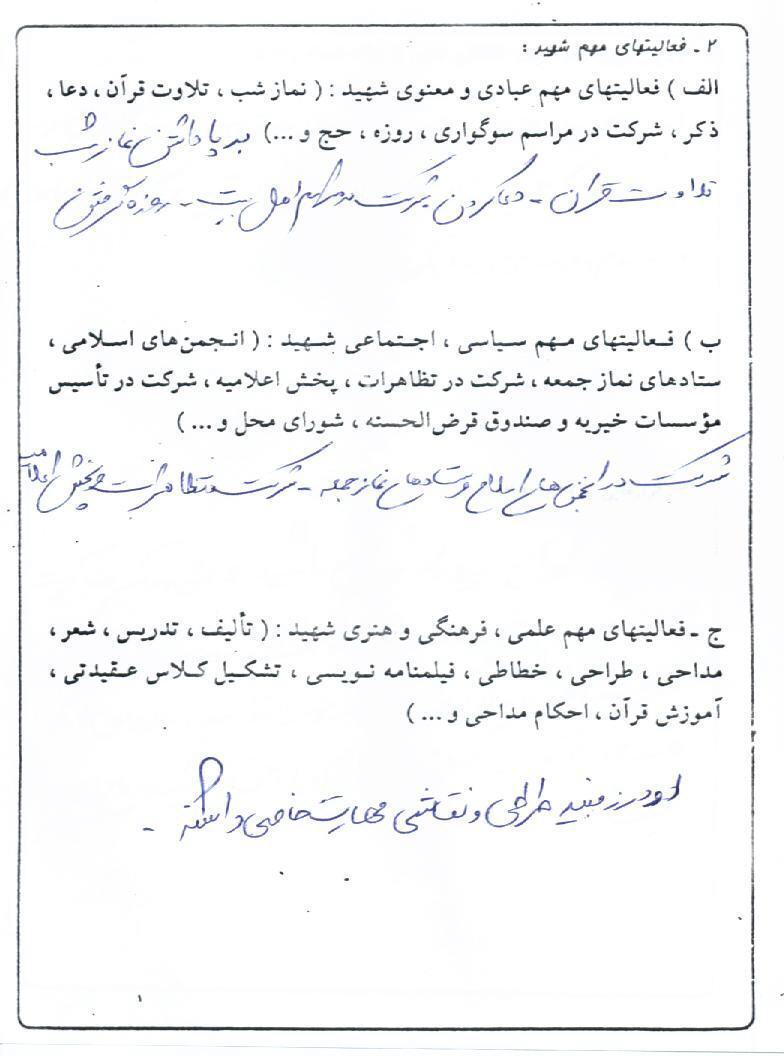 ۲ ـ فعالیتهای مهم شهید :
الف ) فعالیتهای مهم عبادی و معنوی شهید : ( نماز شب ، تلاوت قرآن ، دعا ،
ذکر ، شرکت در مراسم سوگواری ، روزه ، حج و ...) بر پا داشتن نماز شب
تلاوت قرآن - دعا کردن شرکت در مراسم اهل بیت - روزه گرفتن
ب ) فعالیتهای مهم سیاسی ، اجتماعی شهید : ( انجمن‌های اسلامی ،
ستادهای نماز جمعه ، شرکت در تظاهرات ، پخش اعلامیه ، شرکت در تأسیس
مؤسسات خیریه و صندوق قرض‌الحسنه ، شورای محل و ... )
شرکت در انجمن های اسلامی و ستادهای نماز جمعه - شرکت در تظاهرات و پخش اعلامیه
ج ـ فعالیتهای مهم علمی ، فرهنگی و هنری شهید : ( تألیف ، تدریس ، شعر ،
مداحی ، طراحی ، خطاطی ، فیلمنامه نویسی ، تشکیل کلاس عقیدتی ،
آموزش قرآن ، احکام مداحی و ... )
او در زمینه طراحی و نقاشی مهارت خاصی داشته -
۱